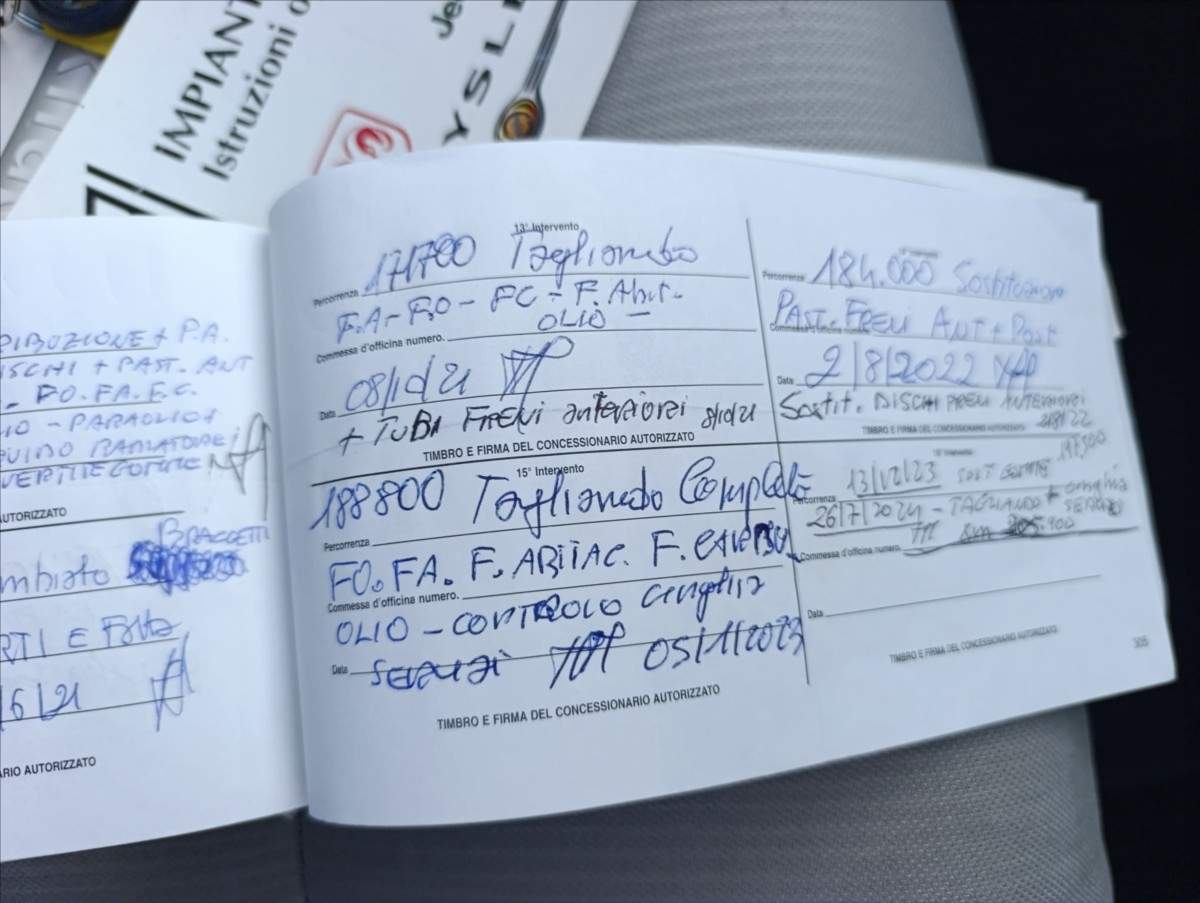 IMPIANT
Istruzioni o
Je
YSLE
RIBUZIONE + P.A.
ISCHI + PAST. ANT
- FO. FA. F.C.
IO - PARAOLIO +
QUIDO RADIATORE
AUTORIZZATO
BRACCETTI
mbiato
RTI E
6/21
RIO AUTORIZZATO
13° Intervento
171700 Tagliando
Percorrenza
F.A - F.O - FC - F. Abit.
OLIO -
Commessa d'officina numero.
08/10/21
Data
+ TUBI FRENI anteriori 8/10/21
TIMBRO E FIRMA DEL CONCESSIONARIO AUTORIZZATO
184.000 Sostituzione
Percorrenza
PAST. FRENI ANT + Post
2/8/2022
Data
Sostit. DISCHI FRENI ANTERIORI
TIMBRO E FIRMA DEL CONCESSIONARIO AUTORIZZATO
15° Intervento
188800 Tagliando Completo
Percorrenza
FO. FA. F. ABITAC. F.
Commessa d'officina numero.
OLIO - CONTROLLO cinghia
Data
SERVIZI 05/1/2023
TIMBRO E FIRMA DEL CONCESSIONARIO AUTORIZZATO
197.500
13/12/23 SOST GOMME
Percorrenza
26/7/2024 - TAGLIANDO + cinghia
SERVIZI
Commessa d'officina numero.
Data
TIMBRO E FIRMA DEL CONCESSIONARIO AUTORIZZATO
305